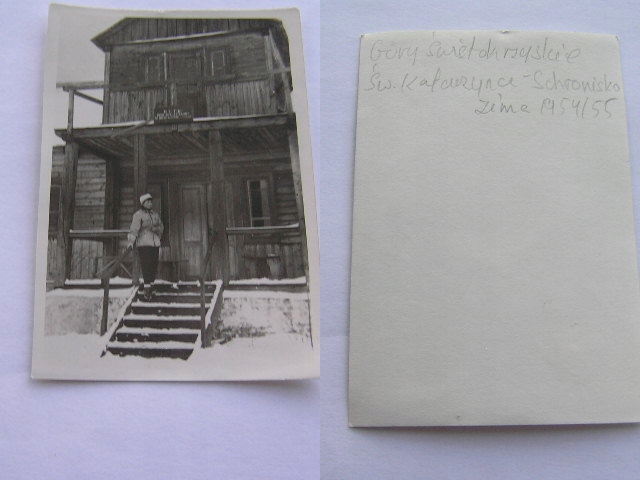 Góry Świętokrzyskie
Św. Katarzyna - Schronisko
zima 1954/55